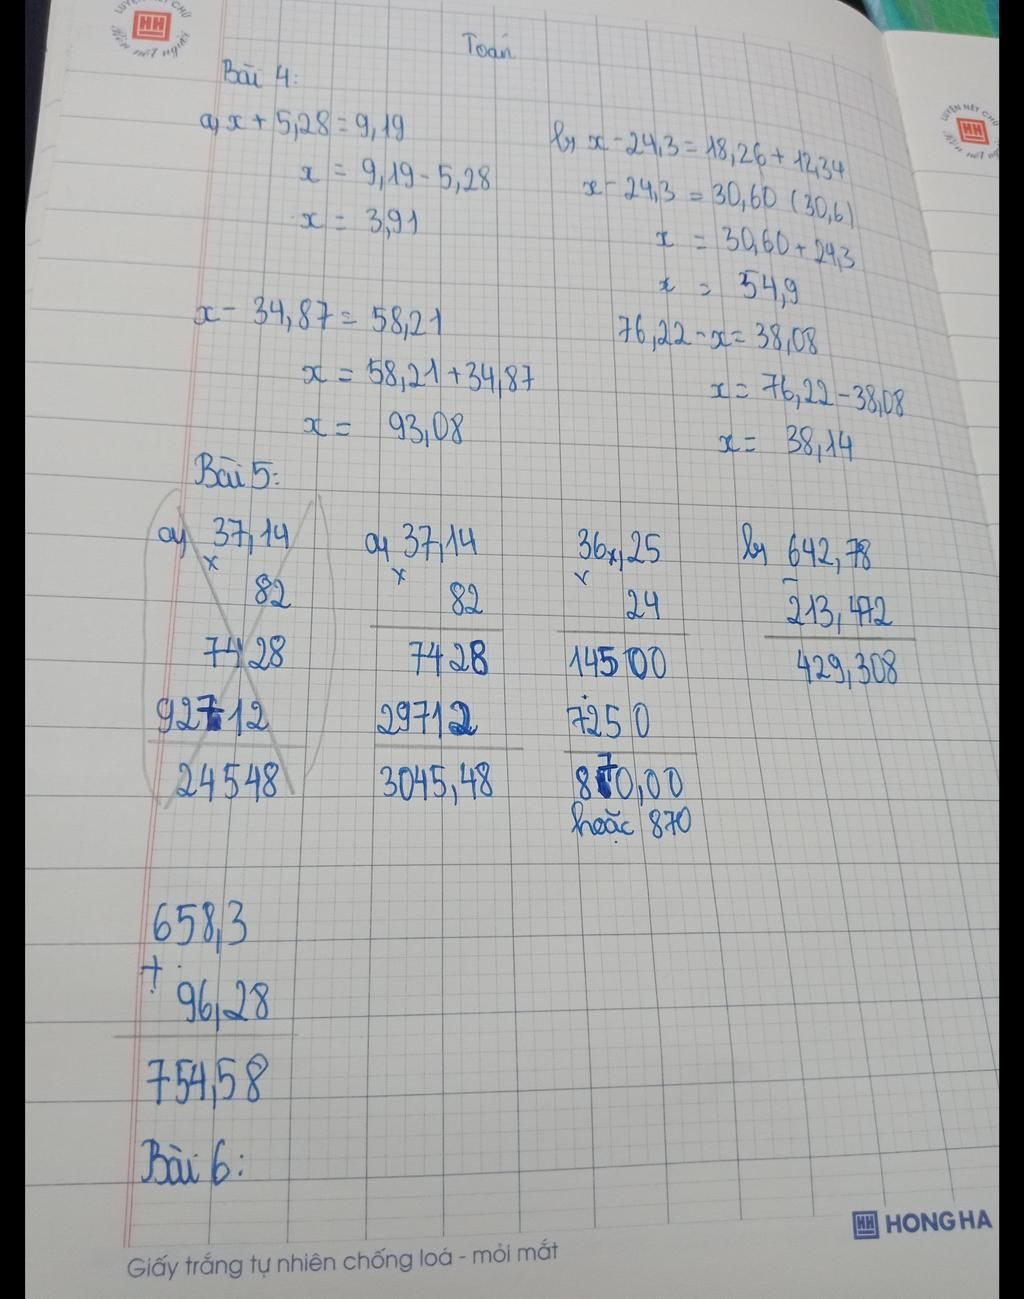 LUYỆN NÉT CHỮ
HH
Rèn nét người
Toán
Bài 4:
a, x + 5,28 = 9,19
x = 9,19 - 5,28
x = 3,91
b, x - 24,3 = 18,26 + 12,34
x - 24,3 = 30,60 (30,6)
x = 30,60 + 24,3
x = 54,9
x - 34,87 = 58,21
x = 58,21 + 34,87
x = 93,08
76,22 - x = 38,08
x = 76,22 - 38,08
x = 38,14
Bài 5:
a, 37,14
x
82
7428
92712
24548
a, 37,14
x
82
7428
29712
3045,48
36,25
x
24
14500
7250
870,00
hoặc 870
b, 642,78
-
213,472
429,308
658,3
+
96,28
754,58
Bài 6:
HH HONG HA
Giấy trắng tự nhiên chống loá - mỏi mắt